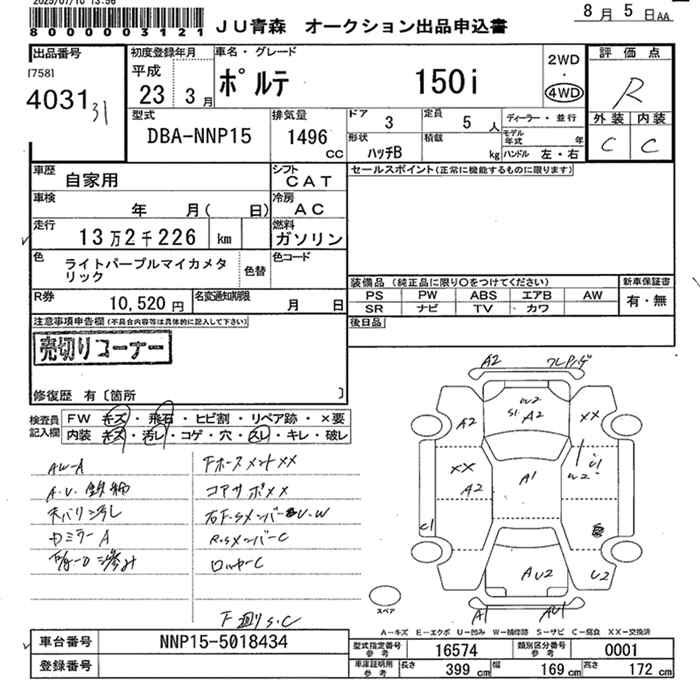 2025/07/10 13:56
80000003121
JU青森 オークション出品申込書
8月5日AA
出品番号
[758]
40313 31
初度登録年月
平成
23 3月
車名・グレード
ポルテ 150i
2WD
・
4WD
評価点
R
外装 内装
C C
型式
DBA-NNP15
排気量
1496
CC
ドア
3
定員
5人
ディーラー・並行
形状
ハッチB
積載
kg
モデル年式 年
ハンドル 左・右
車歴
自家用
シフト
CAT
セールスポイント(正常に機能するものに限ります)
車検
年 月( 日)
冷房
AC
走行
13万2千226 km
燃料
ガソリン
色
ライトパープルマイカメタリック
色替
色コード
装備品 (純正品に限り○をつけてください)
PS PW ABS エアB AW
SR ナビ TV カワ
新車保証書
有・無
R券
10,520円
名変通知期限
月 日
後日品
注意事項申告欄(不具合内容等は具体的に記入して下さい)
売切りコーナー
修復歴 有〔箇所 〕
検査員記入欄
FW キズ・飛石・ヒビ割・リペア跡・×要
内装 キズ・汚レ・コゲ・穴・スレ・キレ・破レ
AW-A
FホースメントXX
コアサポXX
天バリ汚し
右F.SメンバーU.W
DミラーA
R.SメンバーC
ロッカーC
F廻りS.C
A2
W2
S1
A2
A2
XX
XX
A2
A1
U2
C1
C1
AU2
U2
A1
AU1
スペア
A-キズ E-エクボ U-凹み W-補修跡 S-サビ C-腐食 XX-交換済
車台番号
NNP15-5018434
登録番号
型式指定番号
参考
16574
類別区分番号
参考
0001
車庫証明用
参考
長さ 399cm
幅 169cm
高さ 172cm